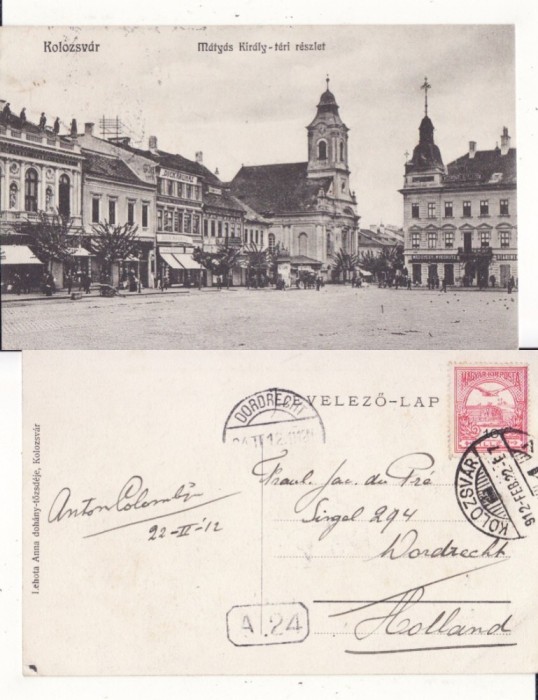 Kolozsvár
Mátyás Király-téri részlet
LEVELEZŐ-LAP
MAGYAR KIR. POSTA
DORDRECHT
KOLOZSVÁR
912-FEB.22-
Lehota Anna dohány-tőzsdéje, Kolozsvár
Anton Colomb
22-II-'12
Fraul. Jac. du Pré
Singel 294
Dordrecht
Holland
A 24